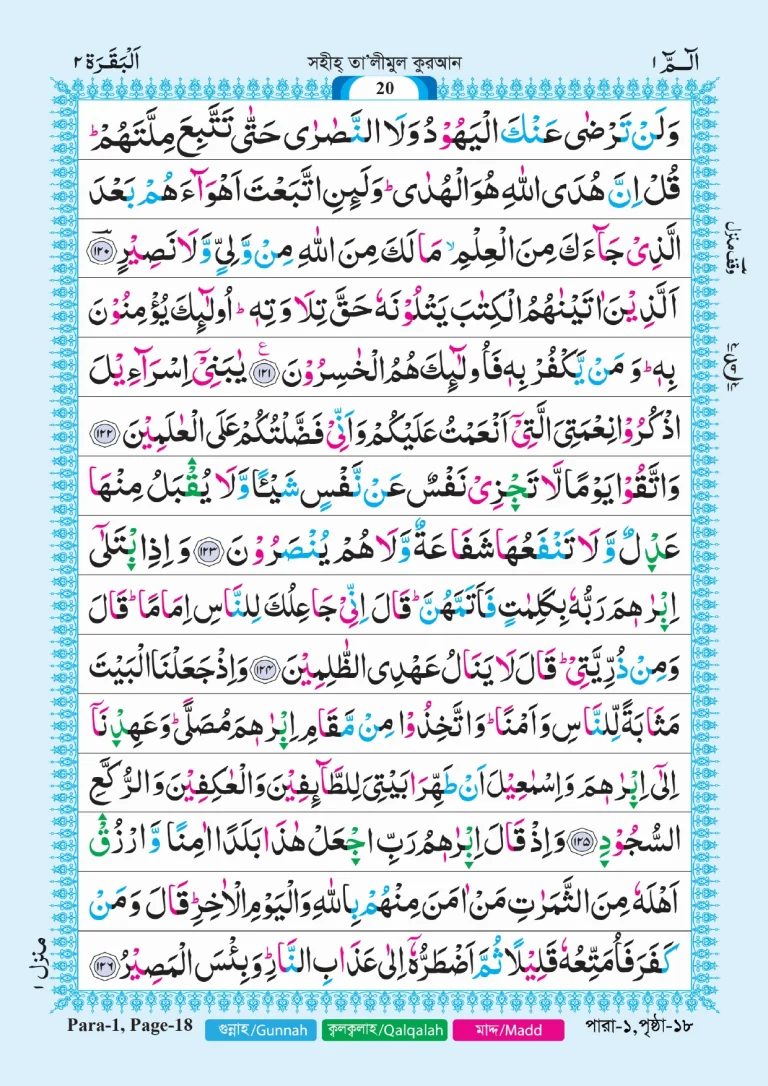 الٓـمّٓ ١ সহীহ্ তা'লীমুল কুরআন اَلْبَقَرَة ٢
20
وَلَنْ تَرْضٰى عَنْكَ الْيَهُوْدُ وَلَا النَّصٰرٰى حَتّٰى تَتَّبِعَ مِلَّتَهُمْ ؕ
قُلْ اِنَّ هُدَى اللّٰهِ هُوَ الْهُدٰى ؕ وَلَىِٕنِ اتَّبَعْتَ اَهْوَآءَهُمْ بَعْدَ
الَّذِىْ جَآءَكَ مِنَ الْعِلْمِ ۙ مَا لَكَ مِنَ اللّٰهِ مِنْ وَّلِىٍّ وَّلَا نَصِيْرٍ ؔ ﴿١٢٠﴾
وقف منزل
اَلَّذِيْنَ اٰتَيْنٰهُمُ الْكِتٰبَ يَتْلُوْنَهٗ حَقَّ تِلَاوَتِهٖ ؕ اُولٰٓىِٕكَ يُؤْمِنُوْنَ
بِهٖ ؕ وَمَنْ يَّكْفُرْ بِهٖ فَاُولٰٓىِٕكَ هُمُ الْخٰسِرُوْنَ ﴿١٢١﴾ ع يٰبَنِىْٓ اِسْرَآءِيْلَ
اذْكُرُوْا نِعْمَتِىَ الَّتِىْٓ اَنْعَمْتُ عَلَيْكُمْ وَاَنِّىْ فَضَّلْتُكُمْ عَلَى الْعٰلَمِيْنَ ﴿١٢٢﴾
وَاتَّقُوْا يَوْمًا لَّا تَجْزِىْ نَفْسٌ عَنْ نَّفْسٍ شَيْـًٔا وَّلَا يُقْبَلُ مِنْهَا
عَدْلٌ وَّلَا تَنْفَعُهَا شَفَاعَةٌ وَّلَا هُمْ يُنْصَرُوْنَ ﴿١٢٣﴾ وَاِذِ ابْتَلٰٓى
اِبْرٰهٖمَ رَبُّهٗ بِكَلِمٰتٍ فَاَتَمَّهُنَّ ؕ قَالَ اِنِّىْ جَاعِلُكَ لِلنَّاسِ اِمَامًا ؕ قَالَ
وَمِنْ ذُرِّيَّتِىْ ؕ قَالَ لَا يَنَالُ عَهْدِى الظّٰلِمِيْنَ ﴿١٢٤﴾ وَاِذْ جَعَلْنَا الْبَيْتَ
مَثَابَةً لِّلنَّاسِ وَاَمْنًا ؕ وَاتَّخِذُوْا مِنْ مَّقَامِ اِبْرٰهٖمَ مُصَلًّى ؕ وَعَهِدْنَآ
اِلٰٓى اِبْرٰهٖمَ وَاِسْمٰعِيْلَ اَنْ طَهِّرَا بَيْتِىَ لِلطَّآىِٕفِيْنَ وَالْعٰكِفِيْنَ وَالرُّكَّعِ
السُّجُوْدِ ﴿١٢٥﴾ وَاِذْ قَالَ اِبْرٰهٖمُ رَبِّ اجْعَلْ هٰذَا بَلَدًا اٰمِنًا وَّارْزُقْ
اَهْلَهٗ مِنَ الثَّمَرٰتِ مَنْ اٰمَنَ مِنْهُمْ بِاللّٰهِ وَالْيَوْمِ الْاٰخِرِ ؕ قَالَ وَمَنْ
كَفَرَ فَاُمَتِّعُهٗ قَلِيْلًا ثُمَّ اَضْطَرُّهٗٓ اِلٰى عَذَابِ النَّارِ ؕ وَبِئْسَ الْمَصِيْرُ ﴿١٢٦﴾
منزل ١
Para-1, Page-18 গুন্নাহ/Gunnah ক্বলক্বলাহ/Qalqalah মাদ্দ/Madd পারা-১,পৃষ্ঠা-১৮